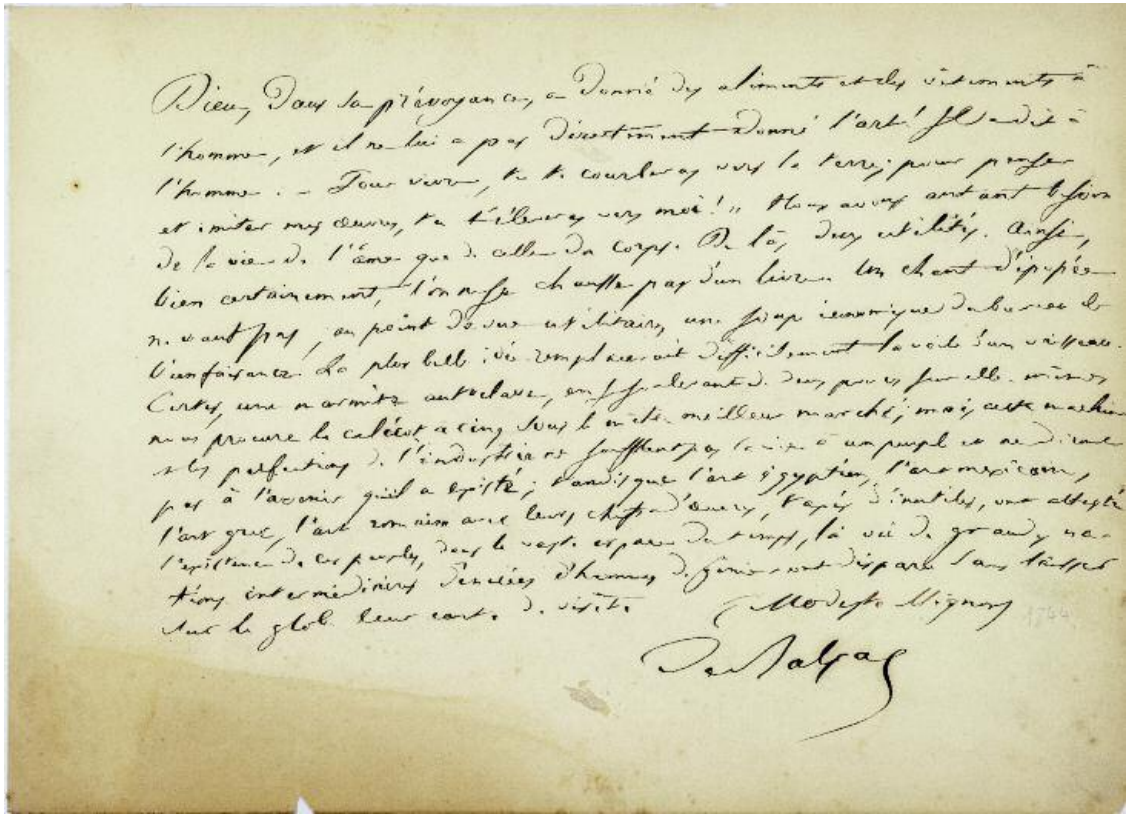 Dieu, dans sa prévoyance, a donné des aliments et des vêtements à
l'homme, et il ne lui a pas directement donné l'art! Il a dit à
l'homme : – Pour vivre, tu te courberas vers la terre; pour penser
et imiter mes œuvres, tu t'élèveras vers moi! „ Nous avons autant besoin
de la vie de l'âme que de celle du corps. De là, deux utilités. Ainsi,
bien certainement, l'on ne se chauffe pas d'un livre. Un chant d'épopée
ne vaut pas, au point de vue utilitaire, une soupe économique du bureau de
bienfaisance. La plus belle idée remplacerait difficilement la voile d'un vaisseau.
Certes, une marmite autoclave, en se soulevant de deux pouces sur elle-même,
nous procure le calicot à cinq sous le mètre meilleur marché; mais, cette machine
et les perfections de l'industrie ne soufflent pas la vie à un peuple et ne diront
pas à l'avenir qu'il a existé; tandis que l'art égyptien, l'art mexicain,
l'art grec, l'art romain avec leurs chefs-d'œuvre, taxés d'inutiles, ont attesté
l'existence de ces peuples, dans le vaste espace du temps, là où de grandes na-
tions intermédiaires dénuées d'hommes de génie ont disparu sans laisser
sur le globe leur carte de visite.
(Modeste Mignon)
1844
De Balzac